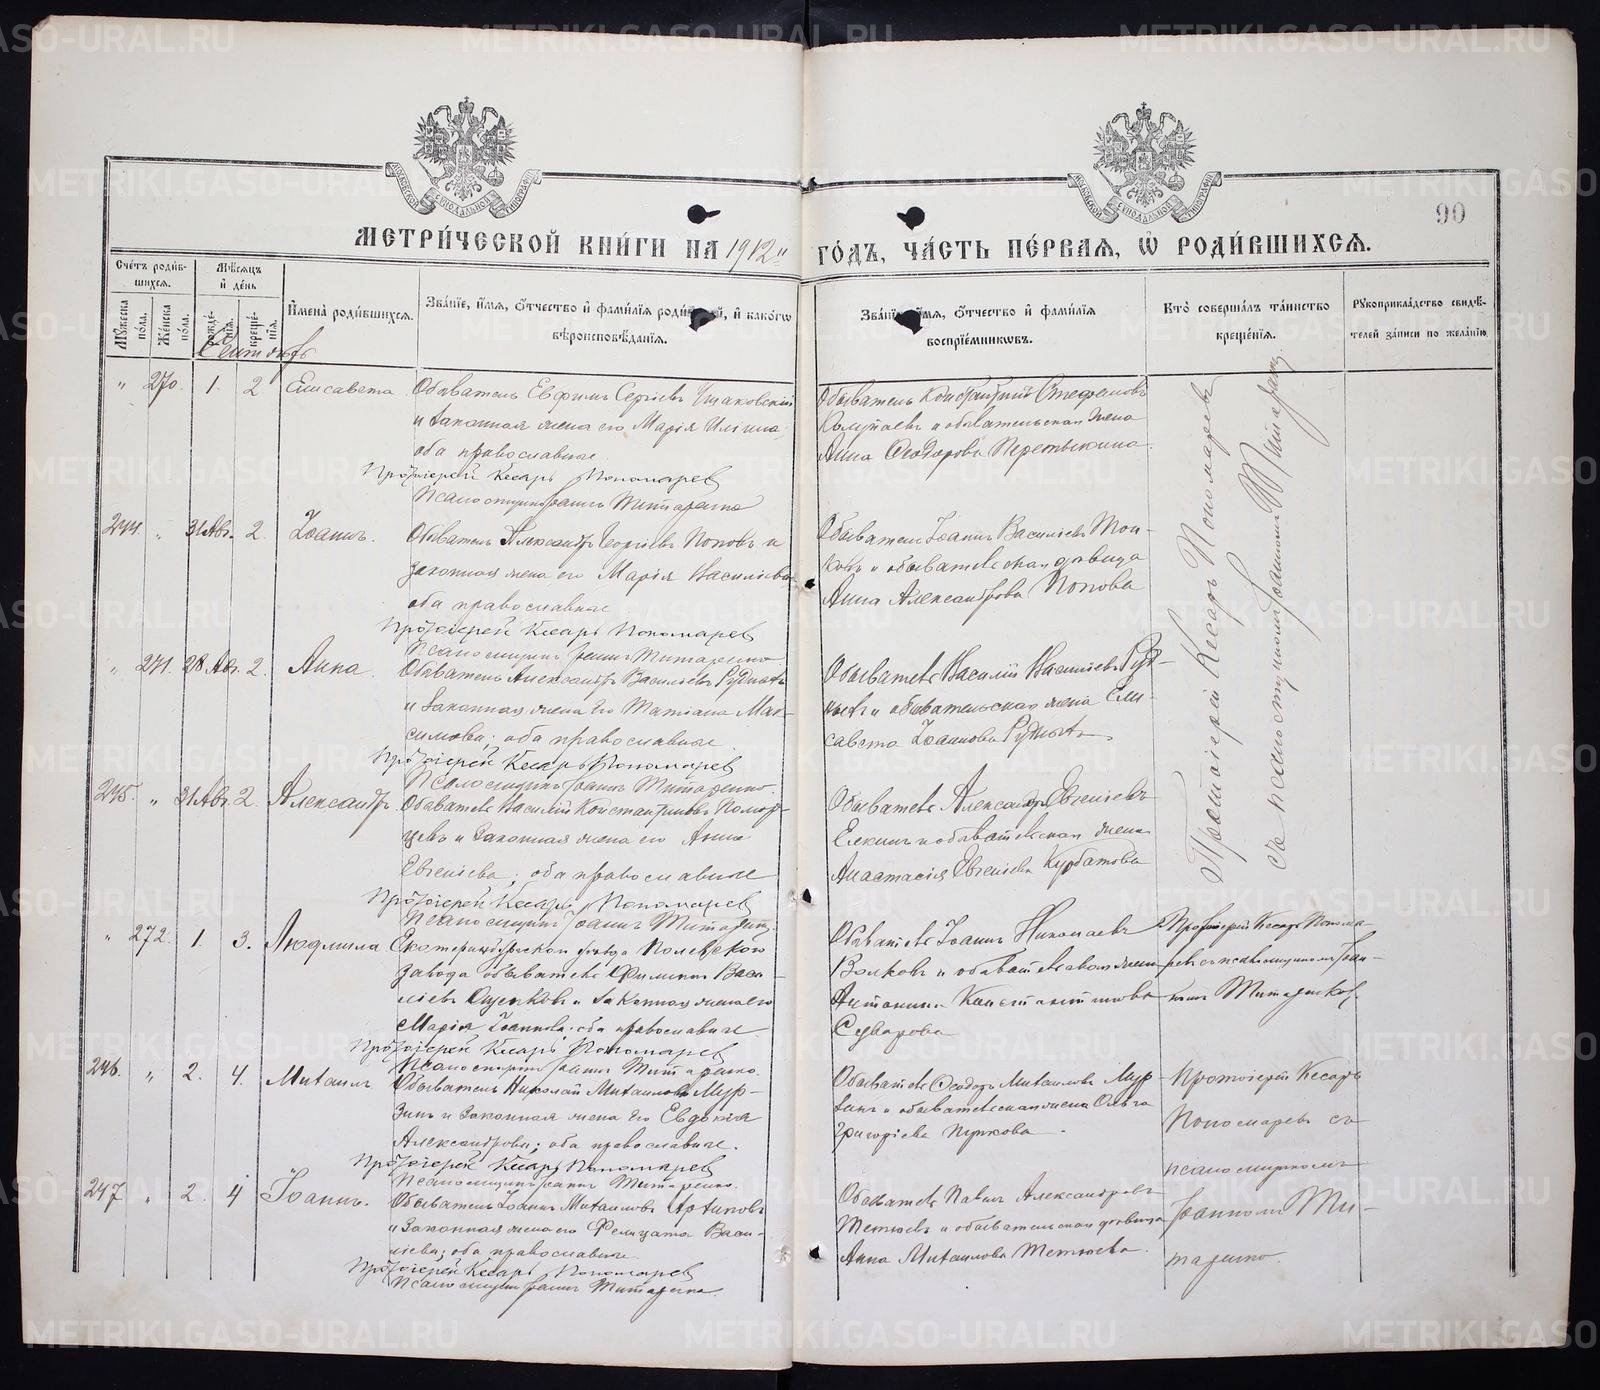 90
МЕТРИ́ЧЕСКОЙ КНИ́ГИ НА 1912 ГО́ДЪ, ЧА́СТЬ ПЕ́РВАѦ, Ѡ҆ РОДИ́ВШИХСѦ.
Сче́тъ роди́вшихсѧ.
Мꙋ́жеска по́ла.
Же́нска по́ла.
Мѣ́сѧцъ и҆ де́нь
рожде́нїѧ.
креще́нїѧ.
И҆мена̀ роди́вшихсѧ.
Зва́нїе, и҆́мѧ, ѻ҆́тчество и҆ фами́лїѧ роди́телей, и҆ како́гѡ
вѣроисповѣ́данїѧ.
Зва́нїе, и҆́мѧ, ѻ҆́тчество и҆ фами́лїѧ
воспрїе́мникѡвъ.
Кто̀ соверша́лъ та́инство
креще́нїѧ.
Рꙋкоприкла́дство свидѣ́-
телей за́писи по жела́нїю.
Сентябрь
" 270. 1. 2 Елисавета Обыватель Евфимъ Сергіевъ
и законная жена его Марія
оба православные.
Протоіерей Кесарь Пономаревъ
Псаломщикъ Іоаннъ Титаренко
Обыватель Константинъ Стефановъ
и обывательская жена
Анна Ѳеодорова
Протоіерей Кесарь Пономаревъ
съ псаломщикомъ Іоанномъ Титаренко
244. " 31 Авг. 2. Іоаннъ. Обыватель Александръ Георгіевъ Поповъ и
законная жена его Марія Васильева
оба православные
Протоіерей Кесарь Пономаревъ
Псаломщикъ Іоаннъ Титаренко.
Обыватель Іоаннъ Васильевъ
и обывательская дѣвица
Анна Александрова Попова
" 271. 28 Авг. 2. Анна. Обыватель Александръ Васильевъ
и законная жена его Татіана Мак-
симова; оба православные.
Протоіерей Кесарь Пономаревъ
Псаломщикъ Іоаннъ Титаренко.
Обыватель Василій Васильевъ
и обывательская жена Ели-
савета Іоаннова
245. " 31 Авг. 2. Александръ. Обыватель Василій Константиновъ
и законная жена его Анна
Евгеніева; оба православные
Протоіерей Кесарь Пономаревъ
Псаломщикъ Іоаннъ
Обыватель Александръ Евгеніевъ
Елкинъ и обывательская жена
Анастасія Евгеніева Курбатова
" 272. 1. 3. Людмила Екатеринбургскаго уѣзда Полевскаго
завода обыватель Филиппъ Васи-
льевъ и законная жена его
Марія Іоаннова; оба православные
Протоіерей Кесарь Пономаревъ
Псаломщикъ Іоаннъ Титаренко.
Обыватель Іоаннъ Николаевъ
Волковъ и обывательская жена
Антонина Константинова
Суворова
Протоіерей Кесарь Понома-
ревъ съ псаломщикомъ Іоан-
номъ
246. " 2. 4. Михаилъ Обыватель Николай Михаиловъ Мур-
зинъ и законная жена его Евдокія
Александрова; оба православные.
Протоіерей Кесарь Пономаревъ
Псаломщикъ Іоаннъ Титаренко.
Обыватель Ѳеодоръ Михаиловъ Мур-
зинъ и обывательская жена Ольга
Григоріева
Протоіерей Кесарь
Пономаревъ съ
псаломщикомъ
Іоанномъ Ти-
таренко.
247 " 2. 4 Іоаннъ. Обыватель Іоаннъ Михаиловъ
и законная жена его Фелицата Васи-
ліева; оба православные.
Протоіерей Кесарь Пономаревъ
Псаломщикъ Іоаннъ Титаренко.
Обыватель Павелъ Александровъ
и обывательская дѣвица
Анна Михаилова
METRIKI.GASO-URAL.RU